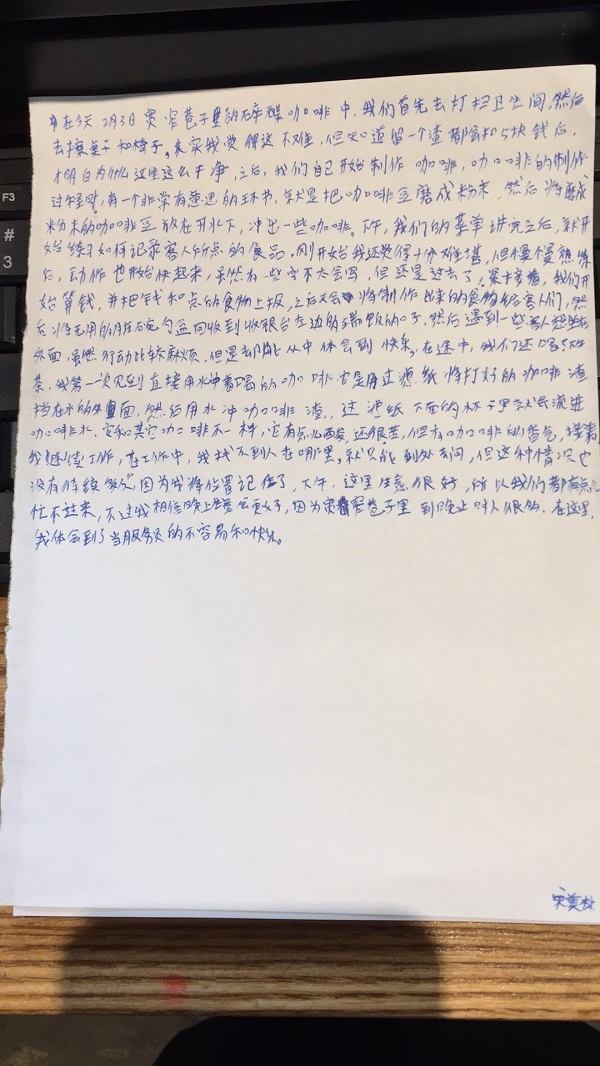 在今天2月3日宽窄巷子里的碎蝶咖啡中,我们首先去打扫卫生间,然后
去擦桌子和椅子。其实我觉得这不难,但知道留一个渣都会扣5块钱后,
才明白为什么这里这么干净,之后,我们自己开始制作咖啡,咖啡的制作
过程,有一个非常有意思的环节,就是把咖啡豆磨成粉末,然后将磨成
粉末的咖啡豆放在开水下,冲出一些咖啡。下午,我们的菜单讲完之后,就开
始练习如何记录客人所点的食品。刚开始我还觉得十分难堪,但慢慢熟练
后,动作也开始快起来,虽然有一些字不大会写,但还是过去了,紧接着,我们开
始算钱,并把钱和点的食物上报,之后会将制作出来的食物给客人们,然
后将无用的 回收到收银台左边的端饭的口子,然后遇到一些客人想坐在
外面,虽然行动比较麻烦,但是却能从中体会到快乐。在途中,我们还喝了
茶,我第一次见到直接用水冲着喝的咖啡它是用过滤纸将打好的咖啡渣
挡在水的外面,然后用水冲咖啡渣,过滤纸下面的杯子里就会流进
咖啡水,它和其它咖啡不一样,它有点儿酸,还很苦,但有咖啡的香气,接着,
我继续工作,在工作中,我找不到人在哪里,就只能到处去问,但这种情况也
没有持续多久,因为我将位置记住了,下午,这里生意很好,所以我们都有点儿
忙不过来,不过我相信晚上生意会更好,因为宽窄巷子里到晚上时人很多,在这里,
我体会到了当服务员的不容易和快乐。